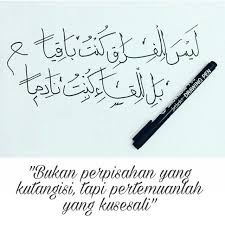 لَيْسَ الْفِرَاقُ كُنْتُ بَاقِيًا
بَلِ الْقَاءُ كُنْتُ نَادِمًا
DRAWING PEN
"Bukan perpisahan yang
kutangisi, tapi pertemuanlah
yang kusesali"